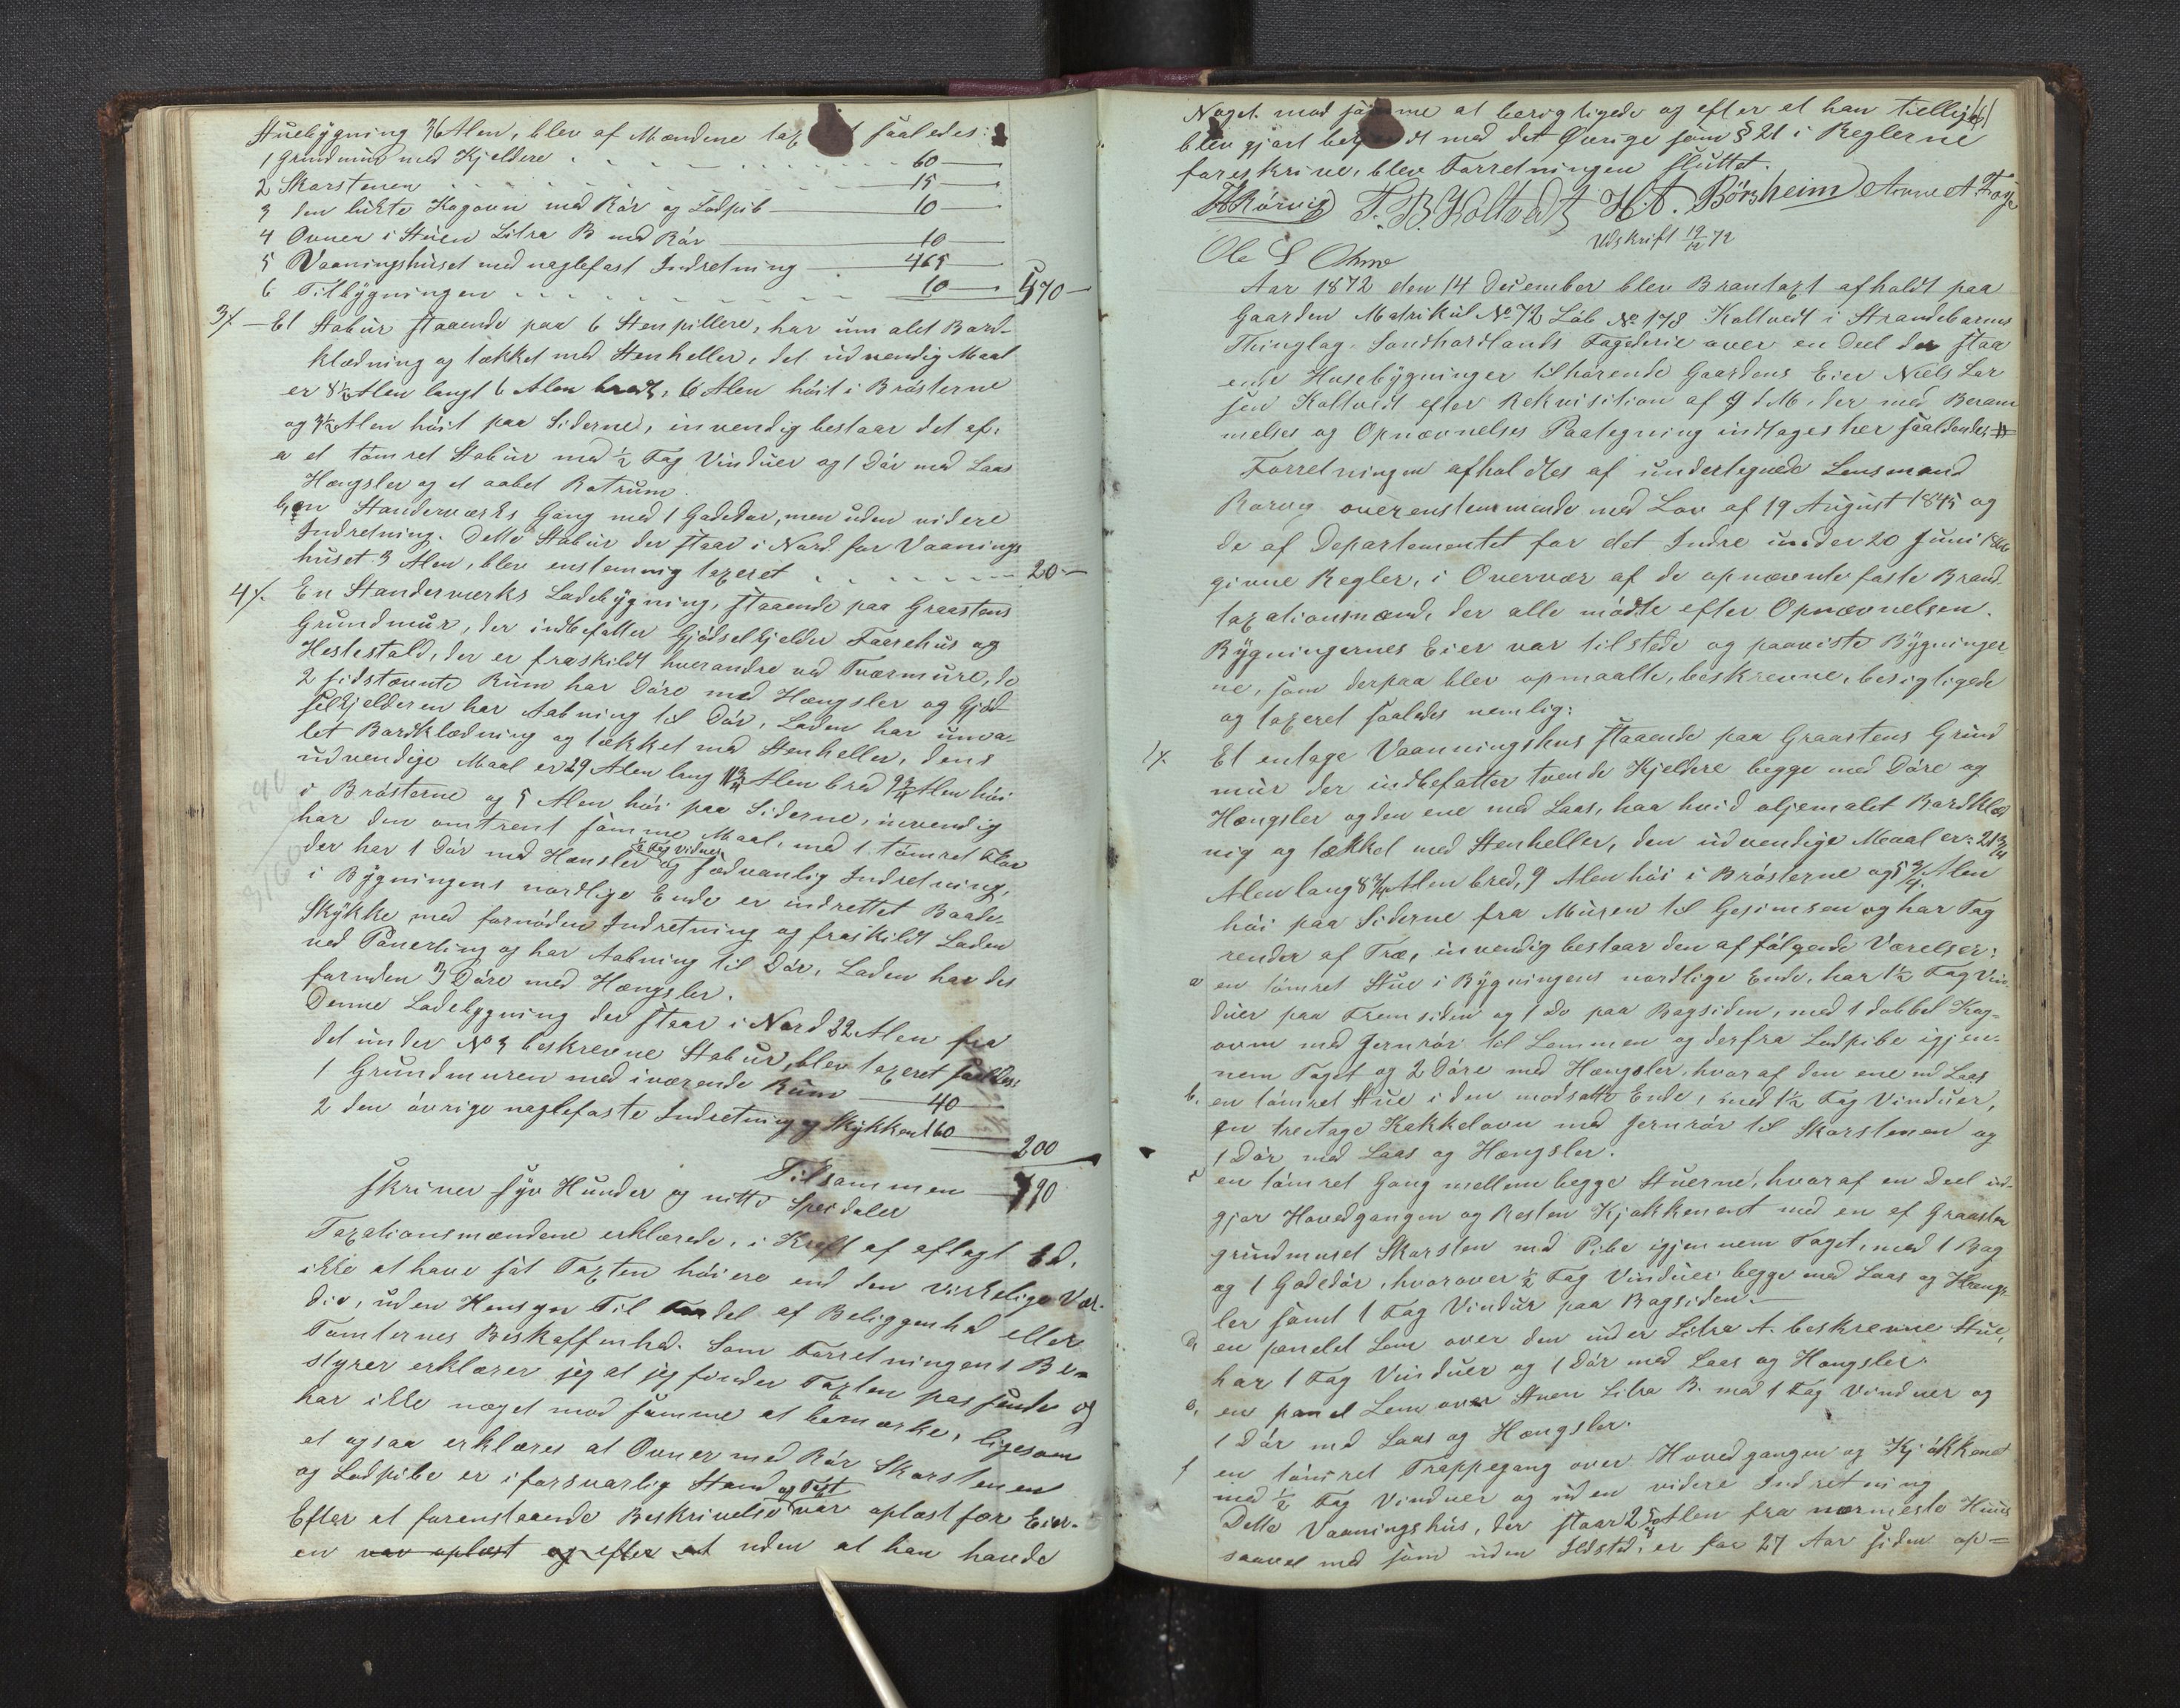 Huebygning 36 Alen, blev af Mændene tax t saaledes:
1 Grundmur med Kjeldere 60
2 Skorstenen 15
3 den lukte Kogovn med Rör og Ladpib 10
4 Ovner i Stuen Litra B med Rör 10
5 Vaaningshuset med naglefast Indretning 465
6 Tilbygningen 10 570
3/. Et Stabur staaende paa 6 Stenpillere, har um alet Bord-
klædning og tækket med Stenheller, det udvendig Maal
er 8½ Alen langt 6 Alen bredt, 6 Alen höit i Brösterne
og 3½ Alen höit paa Siderne, invendig bestaar det af:
a et tömret Stabur med ½ Fag Vinduer og 1 Dör med Laas
Hængsler og et aabet Rotrum.
b, en Standerværks Gang med 1 Gadedör, men uden videre
Indretning. Dette Stabur der staar i Nord for Vaanings
huset 3 Alen, blev enstemmig taxeret 20
4/. En Standerværks Ladebygning, staaende paa Graastens
Grundmur, der indbefatter Gjödselkjelder Faarehus og
Hestestald, der er fraskildt hverandre ved Tværmure, de
2 sidstævnte Rum har Döre med Hængsler og Gjöd
selkjelderen har Aabning til Dör, Laden har uma-
let Bordklædning og tækket med Stenheller, dens
udvendige Maal er 29 Alen lang 11¾ Alen bred 9¾ Alen höi
i Brösterne og 5 Alen höi paa Siderne, invendig
har den omtrent samme Maal, med 1 tömret Flor
2 Fag Viduer
der har 1 Dör med Hænsler og sædvanlig Indretning,
i Bygningens nordlige Ende er indrettet Baade-
Skykke med fornöden Indretning og fraskildt Laden
ved Panerling og har Aabning til Dör, Laden har des
foruden 3 Döre med Hængsler.
Denne Ladebygning der staar i Nord 22 Alen fra
det under No 3 beskrevne Stabur, blev taxeret saaledes:
1 Grundmuren med iværende Rum 40
2 den övrige naglefaste Indretning og Skykken 160 200
Tilsammen 790
skriver syv Hunder og nitti Speidaler
Taxationsmændene erklærede, i Kraft af aflagt Ed,
ikke at have sat Taxten höiere end den virkelige Vær-
die, uden Hensyn Til Fordel af Beliggenhed eller
Tomternes Beskaffenhed. Som Forretningens Be-
styrer erklærer jeg at jeg finder Taxten passende og
har ikke noget mod samme at bemærke, ligesom
at ogsaa erklæres at Ovner med Rör Skorstenen
og Ladpibe er i forsvarlig Stand
og Taxt
Efter at foranstaaende Beskrivelse var oplæst for Eier-
en var oplæst og efter at uden at han havde
Noget mod samme at berigtigede og efter at han tillige
blev gjort bekj dt med det Övrige som § 21 i Reglerne
foreskrive, blev Forretningen sluttet.
Rörvig T. B. Koltvedt H. A. Börsheim Arne A. Foye
Udskrift 19/12 72
Ole S
Aar 1872 den 14 December blev Brantaxt afholdt paa
Gaarden Matrikul No 72 Löb No 178 Koltvedt i Strandebarms
Thinglag Söndhordlands Fogderie over en Deel der staa
ende Husebygninger tilhörende Gaardens Eier Niels Lar
sen Koltvedt efter Rekvisition af 9 d M. der med Beram
melses og Opnævnelses Paategning indtages her saaldendes
Forretningen afholdtes af undertegnede Lensmand
Rörvig overenstemmende med Lov af 19 August 1845 og
de af Departementet for det Indre under 20 Juni 1846
givne Regler, i Overvær af de opnævnte faste Brand
taxationsmænd, der alle mödte efter Opnævnelsen.
Bygningernes Eier var tilstede og paaviste Bygninger
ne, som derpaa blev opmaalte, beskrevne, besigtigede
og taxeret saaledes nemlig:
1/. Et entage Vaanningshus staaende paa Graastens Grund
mur der indbefatter tvende Kjeldere begge med Döre og
Hængsler og den ene med Laas, haa hvid oljemalet Bordklæ
nig og tækket med Stenheller, den udvendige Maal er: 21¾
Alen lang 8¾ Alen bred, 9 Alen höi i Brösterne og 5¾ Alen
höi paa Siderne fra Muren til Gesimsen og har Tag
render af Træ, invendig bestaar den af fölgende Værelser:
a en tömret Stue i Bygningens nordlige Ende, har 1½ Fag Vin-
duer paa Fremsiden og 1 Do paa Bagsiden, med 1 dobbel Kog-
ovm med Jernrör til Lemmen og derfra Ladpibe igjen-
nem Taget og 2 Döre med Hængsler, hvoraf den ene md Laas
b. en tömret Stue i den modsatte Ende, med 1½ Fag Vinduer,
en treetage Kakkelovn med Jernrör til Skorstenen og
1 Dör med Laas og Hængsler.
c en tömret Gang mellem begge Stuerne, hvoraf en Deel ud-
gjör Hovedgangen og Resten Kjökkenent med en af Graasten
grundmuret Skorsten med Pibe igjennem Taget, med 1 Bag
og 1 Gadedör, hvorover ½ Fag Vinduer begge med Laas og Hængs-
ler samt 1 Fag Vindur paa Bagsiden.
d, en panelet Lem over den under Litra A. beskrevne Stue,
har 1 Fag Vinduer og 1 Dör med Laas og Hængsler.
e, en panel Lem over Stuen Litra B. med 1 Fag Vinduer og
1 Dör med Laas og Hængsler.
f en tömret Trappegang over Hovedgangen og Kjökkenet
med ½ Fag Vinduer og uden videre Indretning
Dette Vaaningshus, der staar 25 Alen fra nærmeste Huus
saavel med som uden Ildsted, er for 27 Aar siden op=